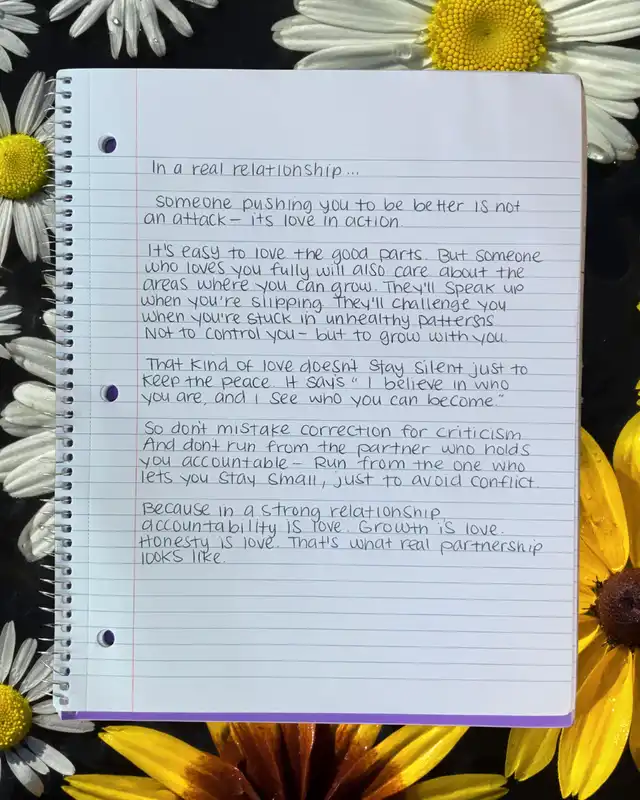 In a real relationship...
Someone pushing you to be better is not
an attack – its love in action.
It's easy to love the good parts. But someone
who loves you fully will also care about the
areas where you can grow. They'll speak up
when you're slipping. They'll challenge you
when you're stuck in unhealthy patterns.
Not to control you – but to grow with you.
That kind of love doesn't stay silent just to
keep the peace. It says " I believe in who
you are, and I see who you can become."
So don't mistake correction for criticism.
And don't run from the partner who holds
you accountable – Run from the one who
lets you stay small, just to avoid conflict.
Because in a strong relationship
accountability is love. Growth is love.
Honesty is love. That's what real partnership
looks like.